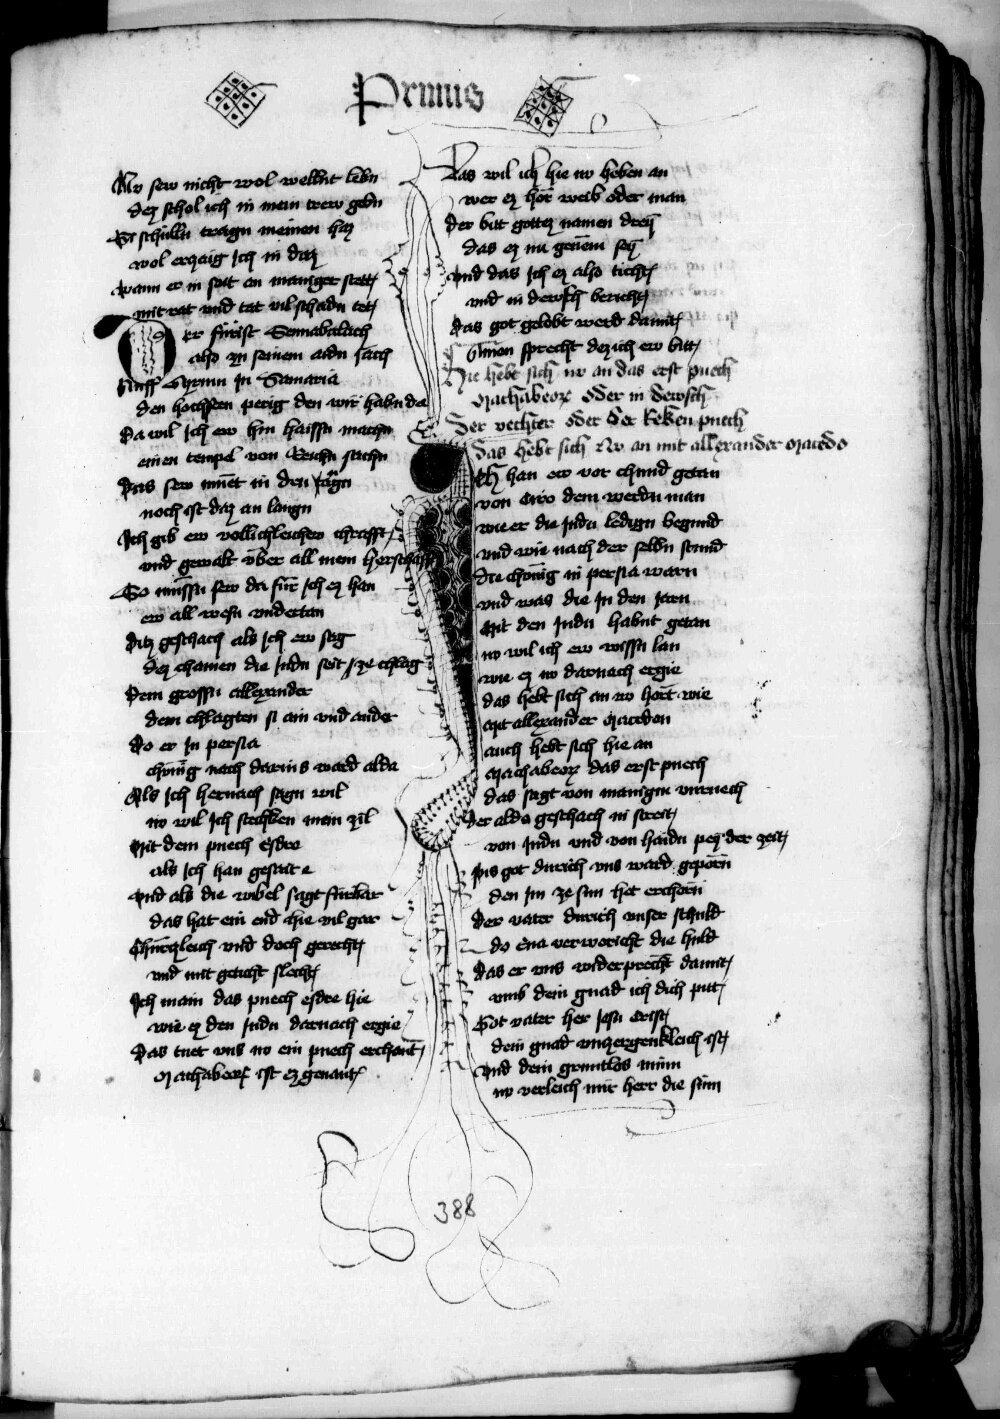 Primus
Als sew nicht wol wellnt lebn
dez schol ich in mein trew gebn
Si schulln tragn meinen haz
wol erzaig ich in daz
wann er in seit an maniger stett
mit rat und tat vil schadn tet
Der fürist Sennabalach
also zu seinem aidn sach
Auff Gyrmn In Samaria
den hochsten perig den wir habn da
Da wil Ich ew hin haissn machn
einen tempel von Reichn sachn
Das sew inner in den tagn
noch ist daz an langn
Ich gib ew vollichleichew chrafft
und gewalt über all mein herschafft
So müssn sew da für Ich ez han
ew all wesn undertan
Ditz geschach als Ich ew sag
dez chamen die Judn seit ze chlag
Dem grossn allexander
dem chlagten si ain und ander
do er In persia
chünig nach darius ward alda
Als Ich hernach sagn wil
no wil Ich stechken mein zil
Mit dem puech esdre
als Ich han gesait e
Und als die wibel sagt fürbar
das hat ein end hie vil gar
Churczleich und doch gerecht
und mit geticht slecht
Ich main das puech esdre hie
wie ez den Judn darnach ergie
Das tuet uns no ein puech erchant
Machabeorum ist ez genant
Das wil ich hie no heben an
wer ez hör weib oder man
der bitt gottez namen drey
das ez nu genem sey
und das Ich ez also ticht
und in dewsch bericht
das got gelobt werd damit
Amen sprecht dez ich ew bitt
Hie hebt sich no an das erst puech
Machabeorum oder in dewsch
Der vechter oder der Reken puech
Das hebt sich no an mit allexander Macedo
Ich han ew vor chund getan
von Ciro dem werdn man
wie er die Judn ledign begund
und wie nach der selbn stund
die chönig in persia warn
und was die In den Jarn
Mit den Judn habnt getan
no wil ich ew wissn lan
wie ez no darnach ergie
das hebt sich an no hort wie
Mit allexander Macedon
auch hebt sich hie an
Machabeorum das erst puech
das sagt von manigm unruech
der aldo geschach in streit
von Judn und von haidn pey der zeit
Pis got durich uns ward geporn
den Im ze sun het erchorn
Der vater durich unser schuld
do Eva verworicht die huld
das er uns widerprecht damit
umb dein gnad ich dich pitt
Got vater her Jesu Crist
dein gnad unzergenkleich ist
Und dein gruntlos minn
no verleich mir herr die sinn
388